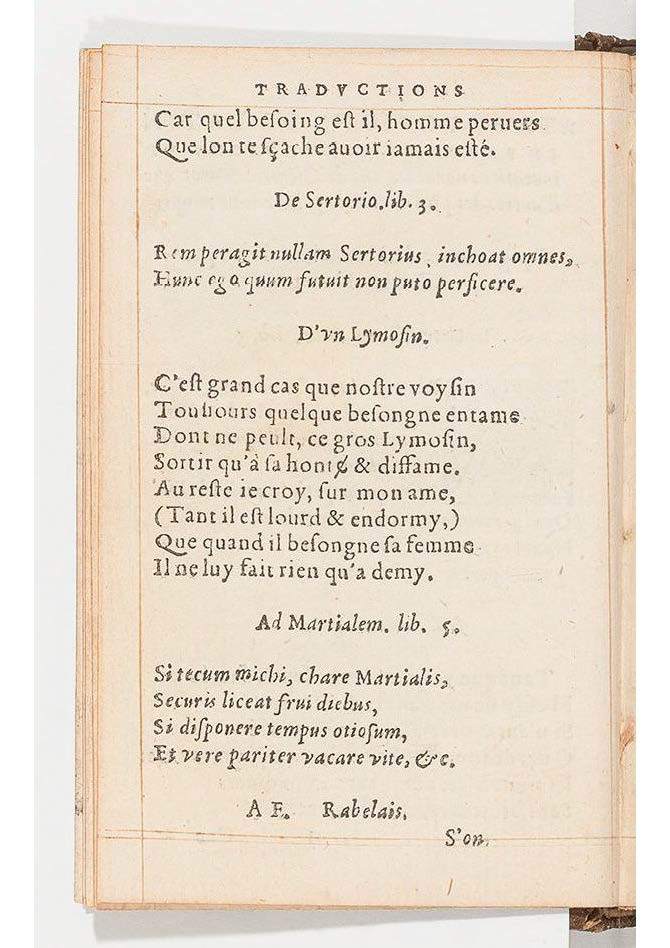 TRADVCTIONS
Car quel beſoing eſt il, homme peruers
Que lon te ſçache auoir iamais eſté.
De Sertorio. lib. 3.
Rem peragit nullam Sertorius, inchoat omnes,
Hunc ego quum futuit non puto perficere.
D'vn Lymoſin.
C'eſt grand cas que noſtre voyſin
Touſiours quelque beſongne entame
Dont ne peult, ce gros Lymoſin,
Sortir qu'à ſa honte & diffame.
Au reſte ie croy, ſur mon ame,
(Tant il eſt lourd & endormy,)
Que quand il beſongne ſa femme
Il ne luy fait rien qu'a demy.
Ad Martialem. lib. 5.
Si tecum michi, chare Martialis,
Securis liceat frui diebus,
Si diſponere tempus otioſum,
Et vere pariter vacare vite, &c.
A F. Rabelais.
S'on